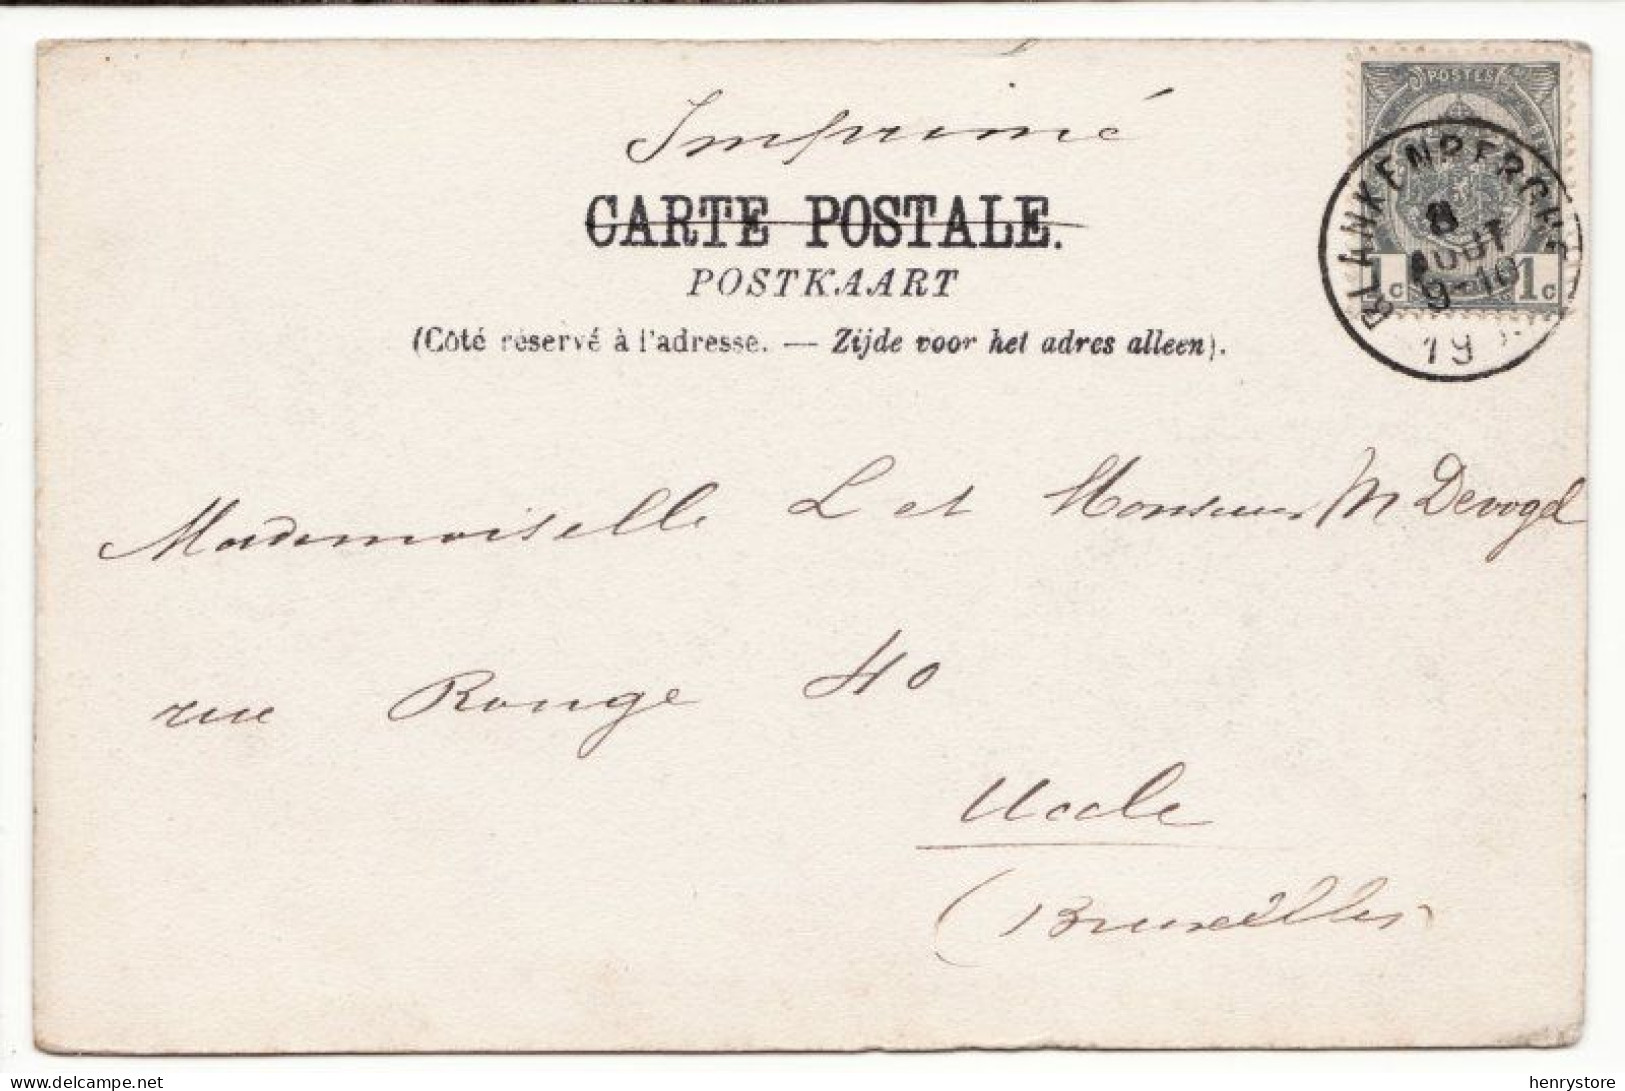 Imprimé
CARTE POSTALE.
POSTKAART
(Côté réservé à l'adresse. — Zijde voor het adres alleen).
POSTES
1c 1c
BLANKENBERGHE
8
AOUT
9-10
19
Mademoiselle L et Monsieur M Devogel
rue Rouge 40
Uccle
(Bruxelles
delcampe.net
henrystore